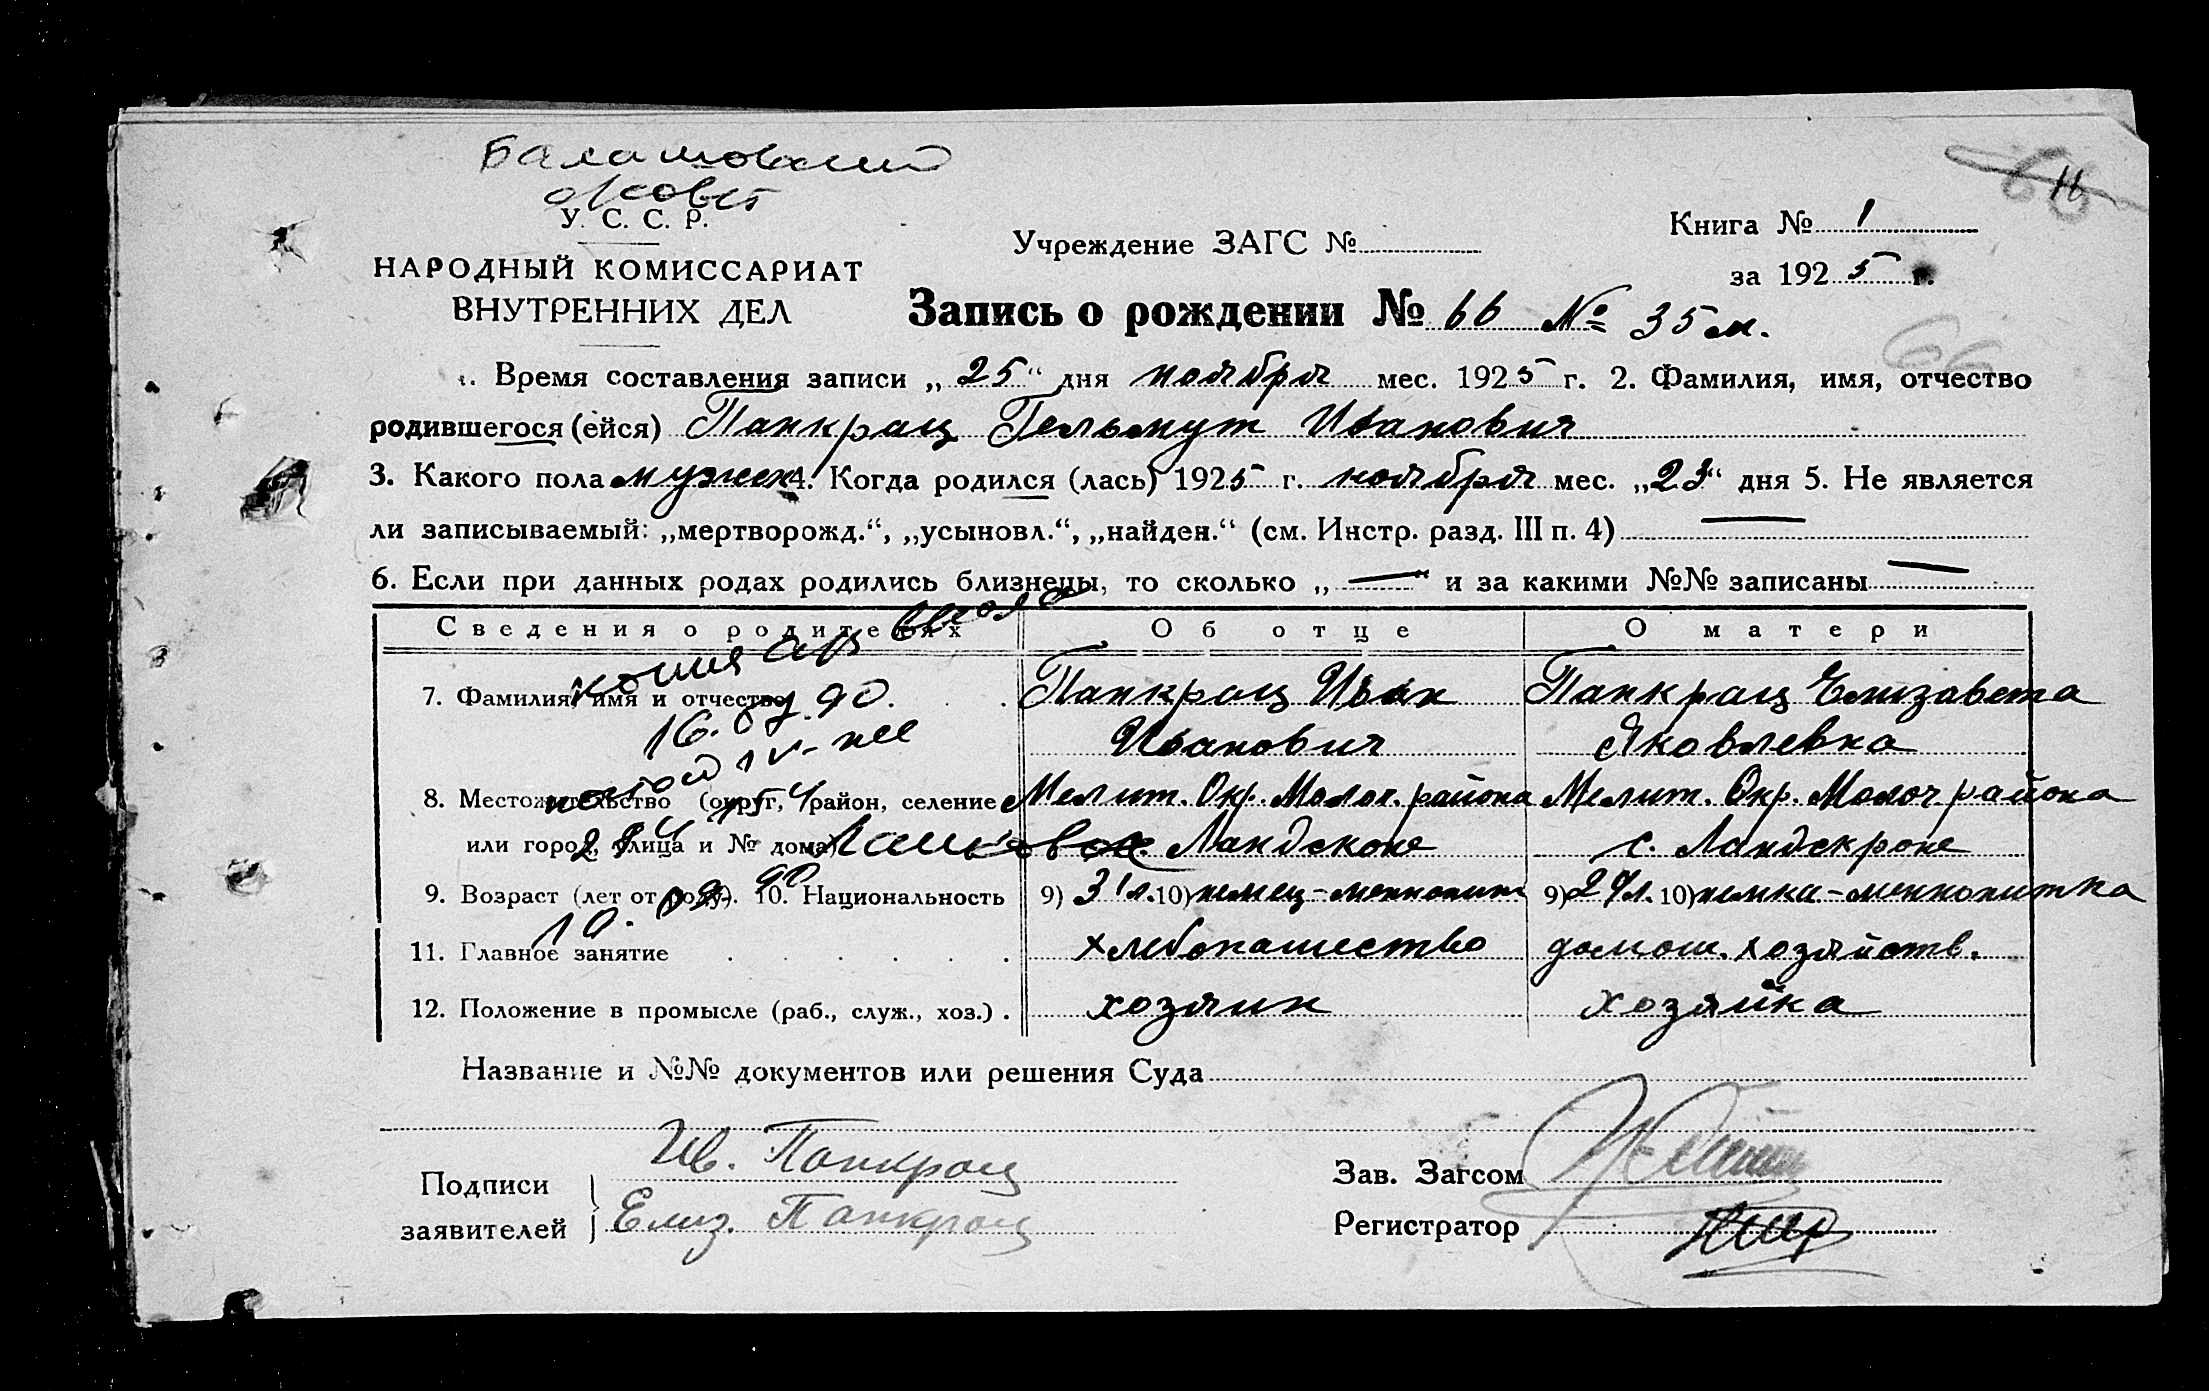 У. С. С. Р.
НАРОДНЫЙ КОМИССАРИАТ
ВНУТРЕННИХ ДЕЛ
Учреждение ЗАГС №
Книга № 1
за 1925 г.
66
Запись о рождении № 66 № 35 м.
1. Время составления записи „25“ дня ноября мес. 1925 г. 2. Фамилия, имя, отчество
родившегося (ейся) Панкрац Гельмут Иванович
3. Какого пола мужск 4. Когда родился (лась) 1925 г. ноября мес. „23“ дня 5. Не является
ли записываемый: „мертворожд.“, „усыновл.“, „найден.“ (см. Инстр. разд. III п. 4) —
6. Если при данных родах родились близнецы, то сколько „—“ и за какими №№ записаны —
Сведения о родителях Об отце О матери
7. Фамилия, имя и отчество Панкрац Иван Панкрац Елизавета
Иванович Яковлевна
8. Местожительство (округ, район, селение Мелит. Окр. Молоч. района Мелит. Окр. Молоч. района
или город, улица и № дома) Ландсконе с. Ландскроне
9. Возраст (лет от роду). 10. Национальность 9) 31 л. 10) немец-меннонит 9) 27 л. 10) немка-меннонитка
11. Главное занятие хлебопашество домаш. хозяйств.
12. Положение в промысле (раб., служ., хоз.) хозяин хозяйка
копия
16. 90.
Название и №№ документов или решения Суда
Подписи
заявителей
Ив. Панкрац
Елиз. Панкрац
Зав. Загсом
Регистратор